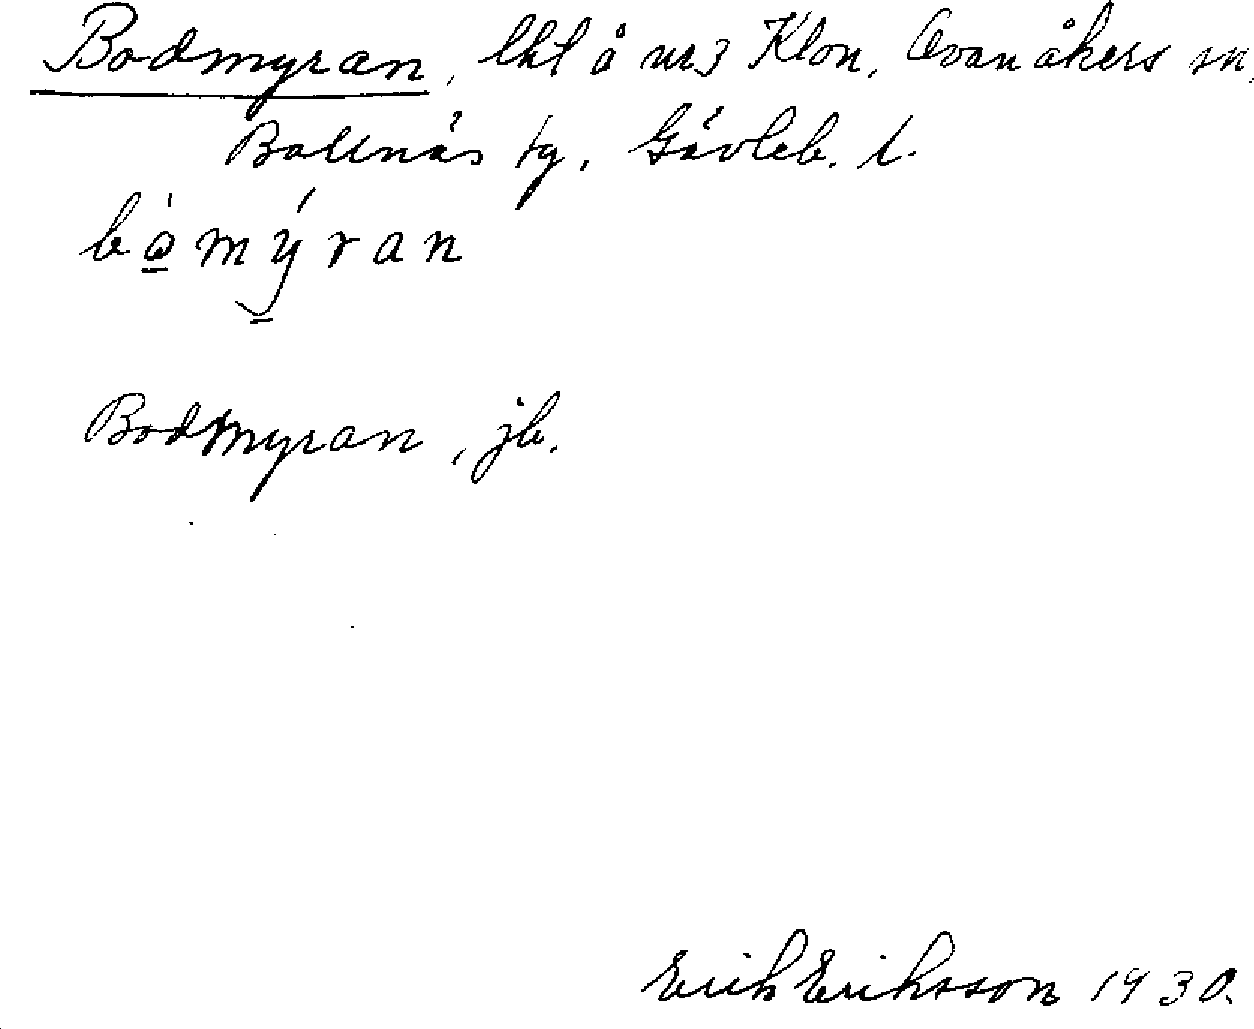 Bodmyran, lht å nr 3 Klon, Ovanåkers sn,
Bollnäs tg, Gävleb. l.
bò̱mýran
Bodmyran, jb.
Erik Eriksson 1930.